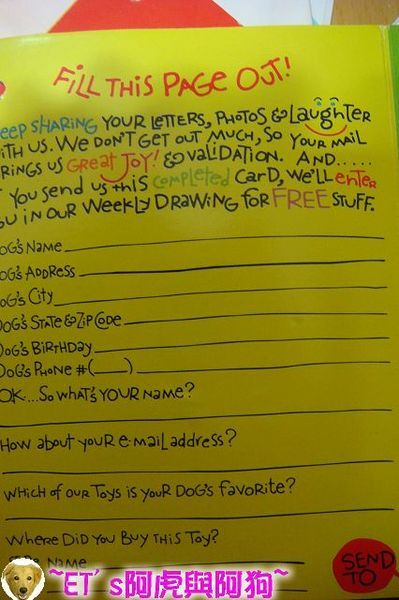 FILL THIS PAGE OUT!
EEP SHARING YOUR LETTERS, PHOTOS & LAUGHTER
ITH US. WE DON'T GET OUT MUCH, SO YOUR MAIL
RINGS US GREAT JOY! & VALIDATION. AND.....
YOU SEND US THIS COMPLETED CARD, WE'LL ENTER
OU IN OUR WEEKLY DRAWING FOR FREE STUFF.
DOG'S NAME
OG'S ADDRESS
OG'S CITY
DOG'S STATE & ZIP CODE
DOG'S BIRTHDAY
DOG'S PHONE #( )
OK...SO WHAT'S YOUR NAME?
HOW ABOUT YOUR E-MAIL ADDRESS?
WHICH OF OUR TOYS IS YOUR DOG'S FAVORITE?
WHERE DID YOU BUY THIS TOY?
NAME
SEND
TO
~ET's阿虎與阿狗~